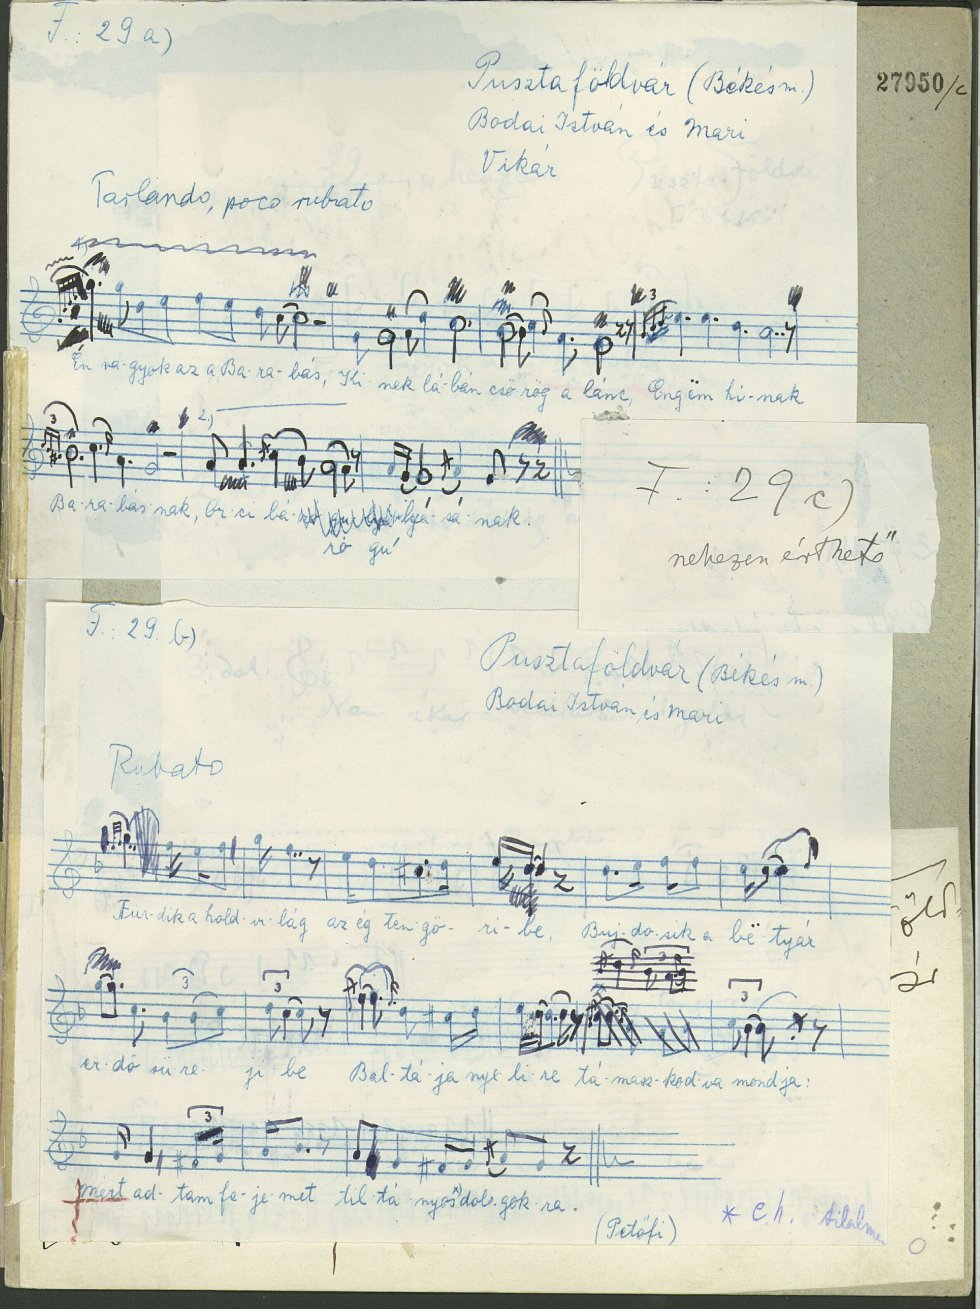 F.: 29 a)
27950/c
Pusztaföldvár (Békés m.)
Bodai István és Mari
Vikár
Parlando, poco rubato
Én va-gyok az a Ba-ra-bás, Ki-nek lá-bán csö-rög a lánc, Engëm hí-nak
Ba-ra-bás-nak, Ör-ci ba-
lyá-sá-nak.
ró gú
F.: 29 c)
nehezen érthető
F.: 29 b)
Pusztaföldvár (Békés m.)
Bodai István és Mari
Rubato
Für-dik a hold-vi-lág az ég ten-gö-ri-be, Buj-do-sik a bë-tyár
er-dő sü-re-ji-be Bal-tá-ja nye-li-re tá-masz-kod-va mondja:
mert ad-tam fe-je-met til-tá-nyos* dol-gok-ra.
(Petőfi)
* E.h. tilalmas